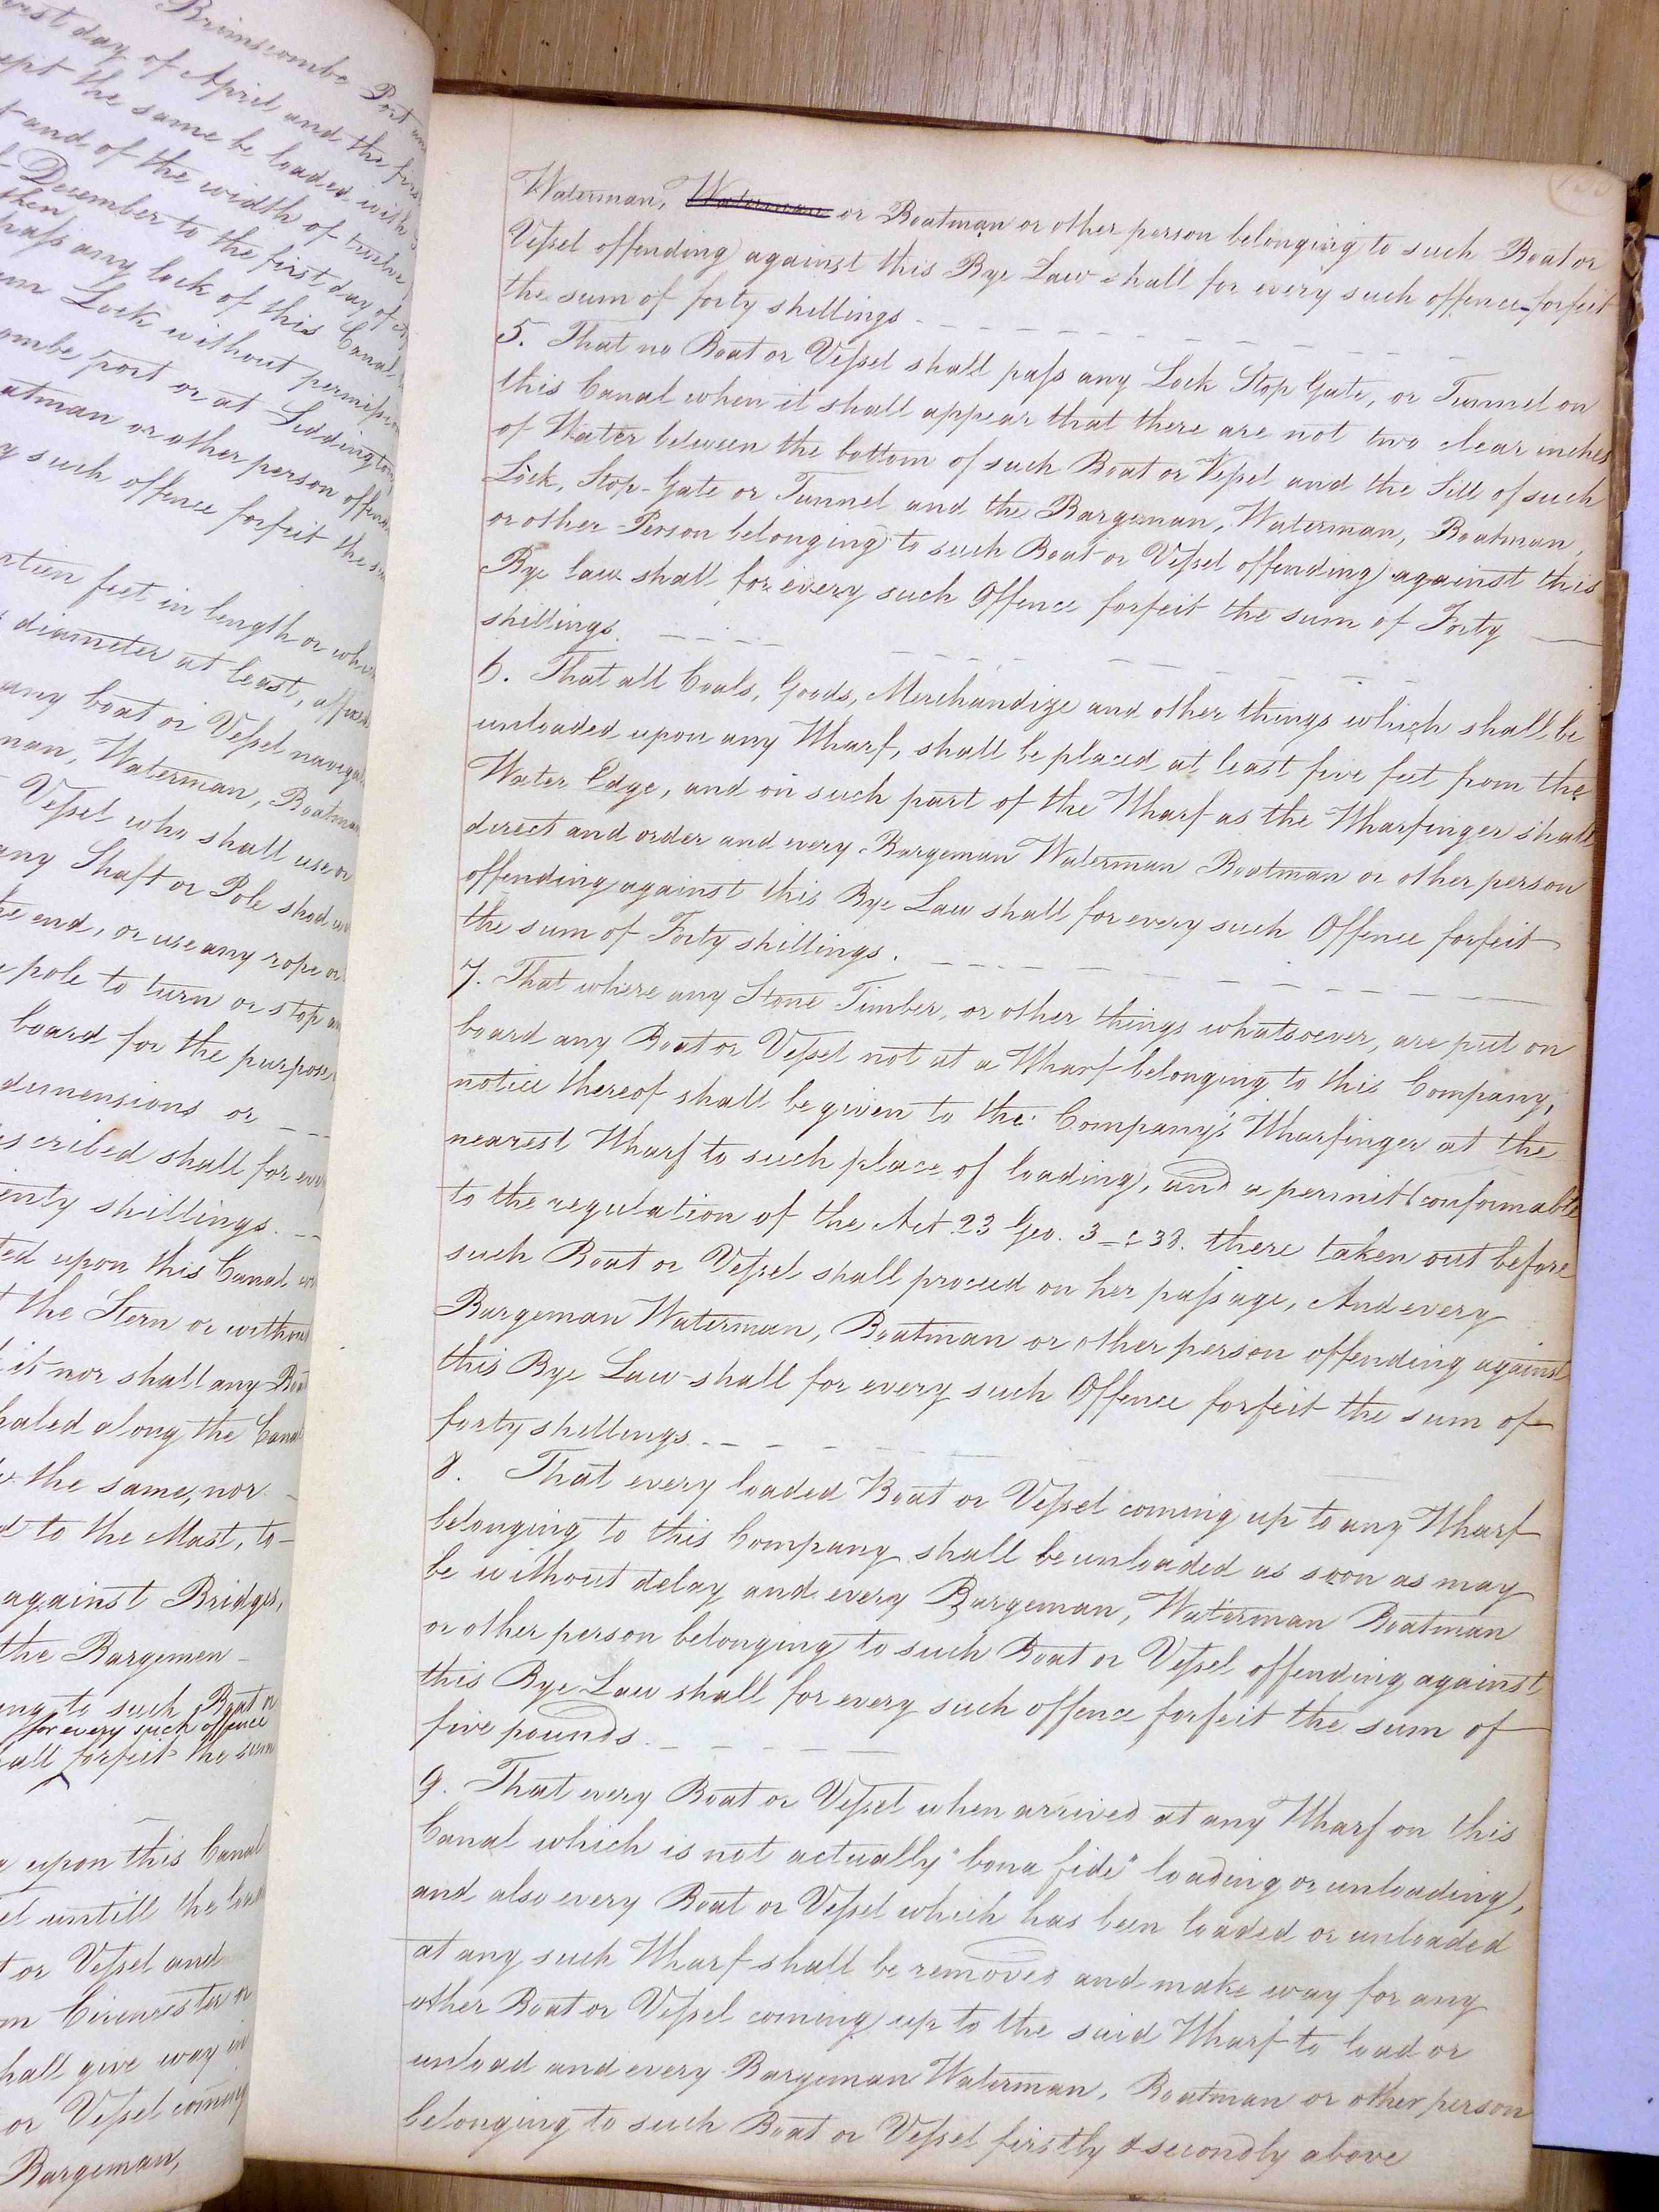 Brimscombe Port an
first day of April and the firs
ept the same be loaded with
t and of the width of twelve
December to the first day of
then
pass any lock of this Canal
Lock without permission
ombe port or at Siddington
atman or other person offen
y such offence forfeit the su
rteen feet in length or whi
diameter at least, affixed
any boat or Vessel naviga
man, Waterman, Boatman
Vessel who shall use or
any Shaft or Pole shod
he end, or use any rope or
pole to turn or stop an
board for the purpose
dimensions or
scribed shall for eve
enty shillings.
ted upon this Canal
t the Stern or without
it nor shall any Boat
haled along the Canal
the same, nor
d to the Mast, to
against Bridges,
the Bargemen
ng to such Boat or
for every such offence
all forfeit the sum
upon this Canal
el untill the
t or Vessel and
m Cirencester or
hall give way
or Vessel coming
Bargeman,
Waterman, Waterman or Boatman or other person belonging to such Boat or
Vessel offending against this Bye Law shall for every such offence forfeit
the sum of forty shillings
5. That no Boat or Vessel shall pass any Lock Stop Gate, or Tunnel on
this Canal when it shall appear that there are not two clear inches
of Water between the bottom of such Boat or Vessel and the Sill of such
Lock, Stop-Gate or Tunnel and the Bargeman, Waterman, Boatman,
or other Person belonging to such Boat or Vessel offending against this
Bye law shall for every such Offence forfeit the sum of Forty
shillings.
6. That all Coals, Goods, Merchandize and other things which shall be
unloaded upon any Wharf, shall be placed at least five feet from the
Water Edge, and on such part of the Wharf as the Wharfinger shall
direct and order and every Bargeman Waterman Boatman or other person
offending against this Bye Law shall for every such Offence forfeit
the sum of Forty shillings.
7. That where any Stone Timber, or other things whatsoever, are put on
board any Boat or Vessel not at a Wharf belonging to this Company,
notice thereof shall be given to the Company's Wharfinger at the
nearest Wharf to such place of loading, and a permit (conformable
to the regulation of the Act 23 Geo. 3 - c 38. there taken out before
such Boat or Vessel shall proceed on her passage, And every
Bargeman Waterman, Boatman or other person offending against
this Bye Law shall for every such Offence forfeit the sum of
forty shillings
8. That every loaded Boat or Vessel coming up to any Wharf
belonging to this Company shall be unloaded as soon as may
be without delay and every Bargeman, Waterman Boatman
or other person belonging to such Boat or Vessel offending against
this Bye Law shall for every such offence forfeit the sum of
five pounds
9. That every Boat or Vessel when arrived at any Wharf on this
Canal which is not actually "bona fide" loading or unloading,
and also every Boat or Vessel which has been loaded or unloaded
at any such Wharf shall be removed and make way for any
other Boat or Vessel coming up to the said Wharf to load or
unload and every Bargeman Waterman, Boatman or other person
belonging to such Boat or Vessel firstly & secondly above